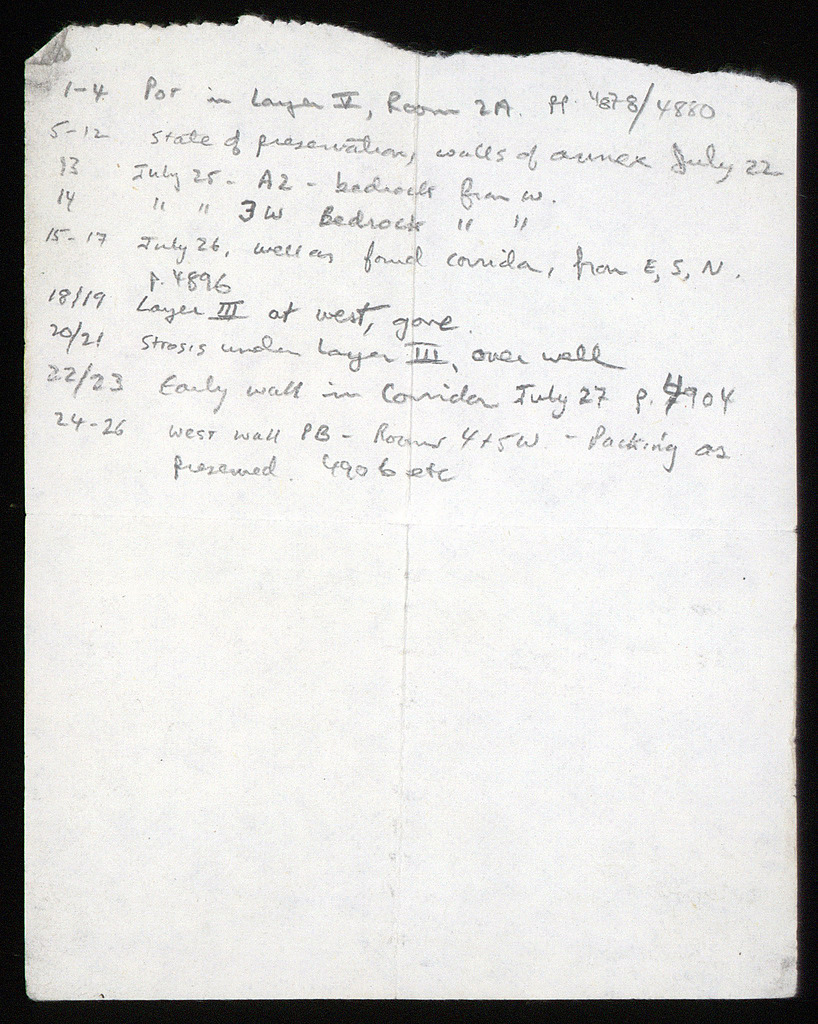 1-4 Pot in Layer V, Room 2A. pp. 4878/4880
5-12 state of preservation, walls of annex July 22
13 July 25 - A2 - bedrock from W.
14 " " 3W Bedrock " "
15-17 July 26, well as found corridor, from E, S, N.
p. 4896
18/19 Layer III at west, gone.
20/21 Strosis under Layer III, over well
22/23 Early wall in Corridor July 27 p. 4904
24-26 West wall PB - Rooms 4+5W. - Packing as
preserved. 4906 etc